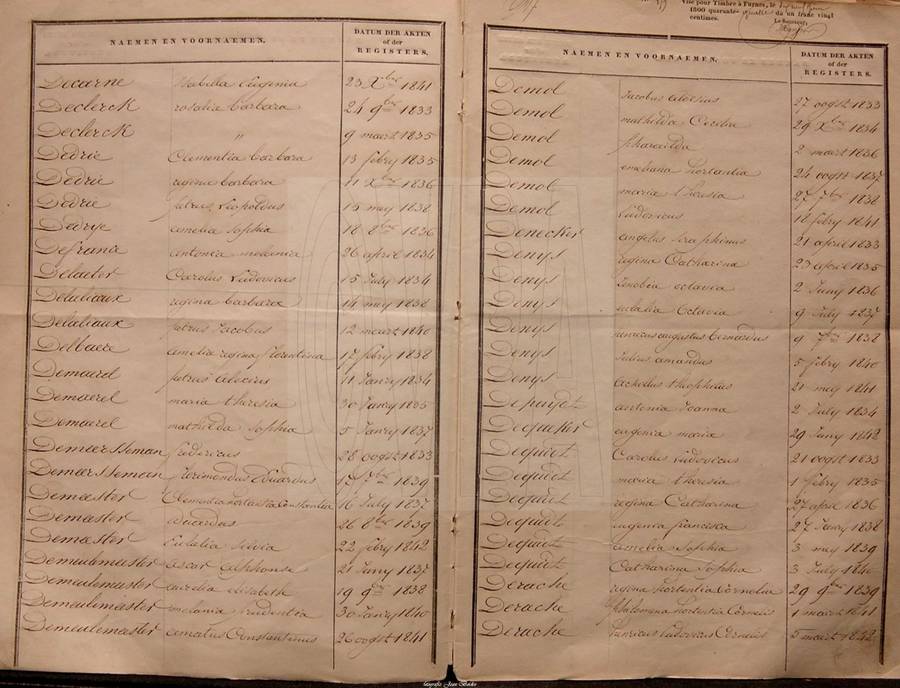 Visé pour Timbre à Furnes, le
1800 quarante quatre dû un franc vingt
centimes. Le Receveur,
NAEMEN EN VOORNAEMEN.
DATUM DER AKTEN
of der
REGISTERS.
Decarne Isabella Eugenia 23 Xbre 1841
Declerck rosalia barbara 24 9bre 1833
Declerck " 9 maart 1835
Dedrie Clementia barbara 13 febry 1835
Dedrie regina barbara 11 Xbre 1836
Dedrie petrus Leopoldus 15 mey 1838
Dedrye amelia Sophia 18 8bre 1836
Defrance antonia melania 26 april 1834
Delaeter Carolus Ludovicus 15 July 1834
Delaliaux regina barbara 14 mey 1838
Delaliaux petrus Jacobus 12 maart 1840
Delbaere amelia regina florentina 17 febry 1838
Demaerel petrus aloisius 11 Janry 1834
Demaerel maria theresia 30 Janry 1835
Demaerel mathilda Sophia 5 Janry 1837
Demeersseman fredericus 28 oogst 1833
Demeersseman florimondus Eduardus 17 1839
Demeester Clementia hortentia Constantia 16 July 1837
Demeester eduardus 26 8bre 1839
Demeester Eulalia silvia 22 febry 1842
Demeulemeester oscar alphonse 21 Juny 1837
Demeulemeester aurelia elisabeth 19 9bre 1838
Demeulemeester melania prudentia 30 Janry 1840
Demeulemeester Constantinus 26 oogst 1841
NAEMEN EN VOORNAEMEN.
DATUM DER AKTEN
of der
REGISTERS.
Demol Jacobus aloisius 27 oogst 1833
Demol mathilda Cecilia 29 Xbre 1834
Demol pharailda 2 maart 1836
Demol emeliana hortantia 24 oogst 1837
Demol maria theresia 27 7bre 1838
Demol Ludovicus 18 febry 1841
Denecker angelus seraphinus 21 april 1833
Denys regina Catharina 23 april 1835
Denys Zenobia octavia 2 Juny 1836
Denys eulalia Octavia 9 July 1837
Denys henricus augustus bernardus 9 7bre 1838
Denys Julius amandus 5 febry 1840
Denys achilles theophilus 21 mey 1841
antonia Joanna 2 July 1834
Dequeker eugenia maria 29 Juny 1842
Dequidt Carolus Ludovicus 21 oogst 1833
Dequidt maria theresia 1 febry 1835
Dequidt regina Catharina 27 april 1836
Dequidt eugenia francisca 27 Janry 1838
Dequidt amelia Sophia 3 mey 1839
Dequidt Catharina Sophia 3 July 1840
Derache regina hortentia Cornelia 29 9bre 1839
Derache philomena hortentia Cornelis 1 maart 1841
Derache henricus Ludovicus Cornelis 5 maart 1842
fotografie Jean Basko